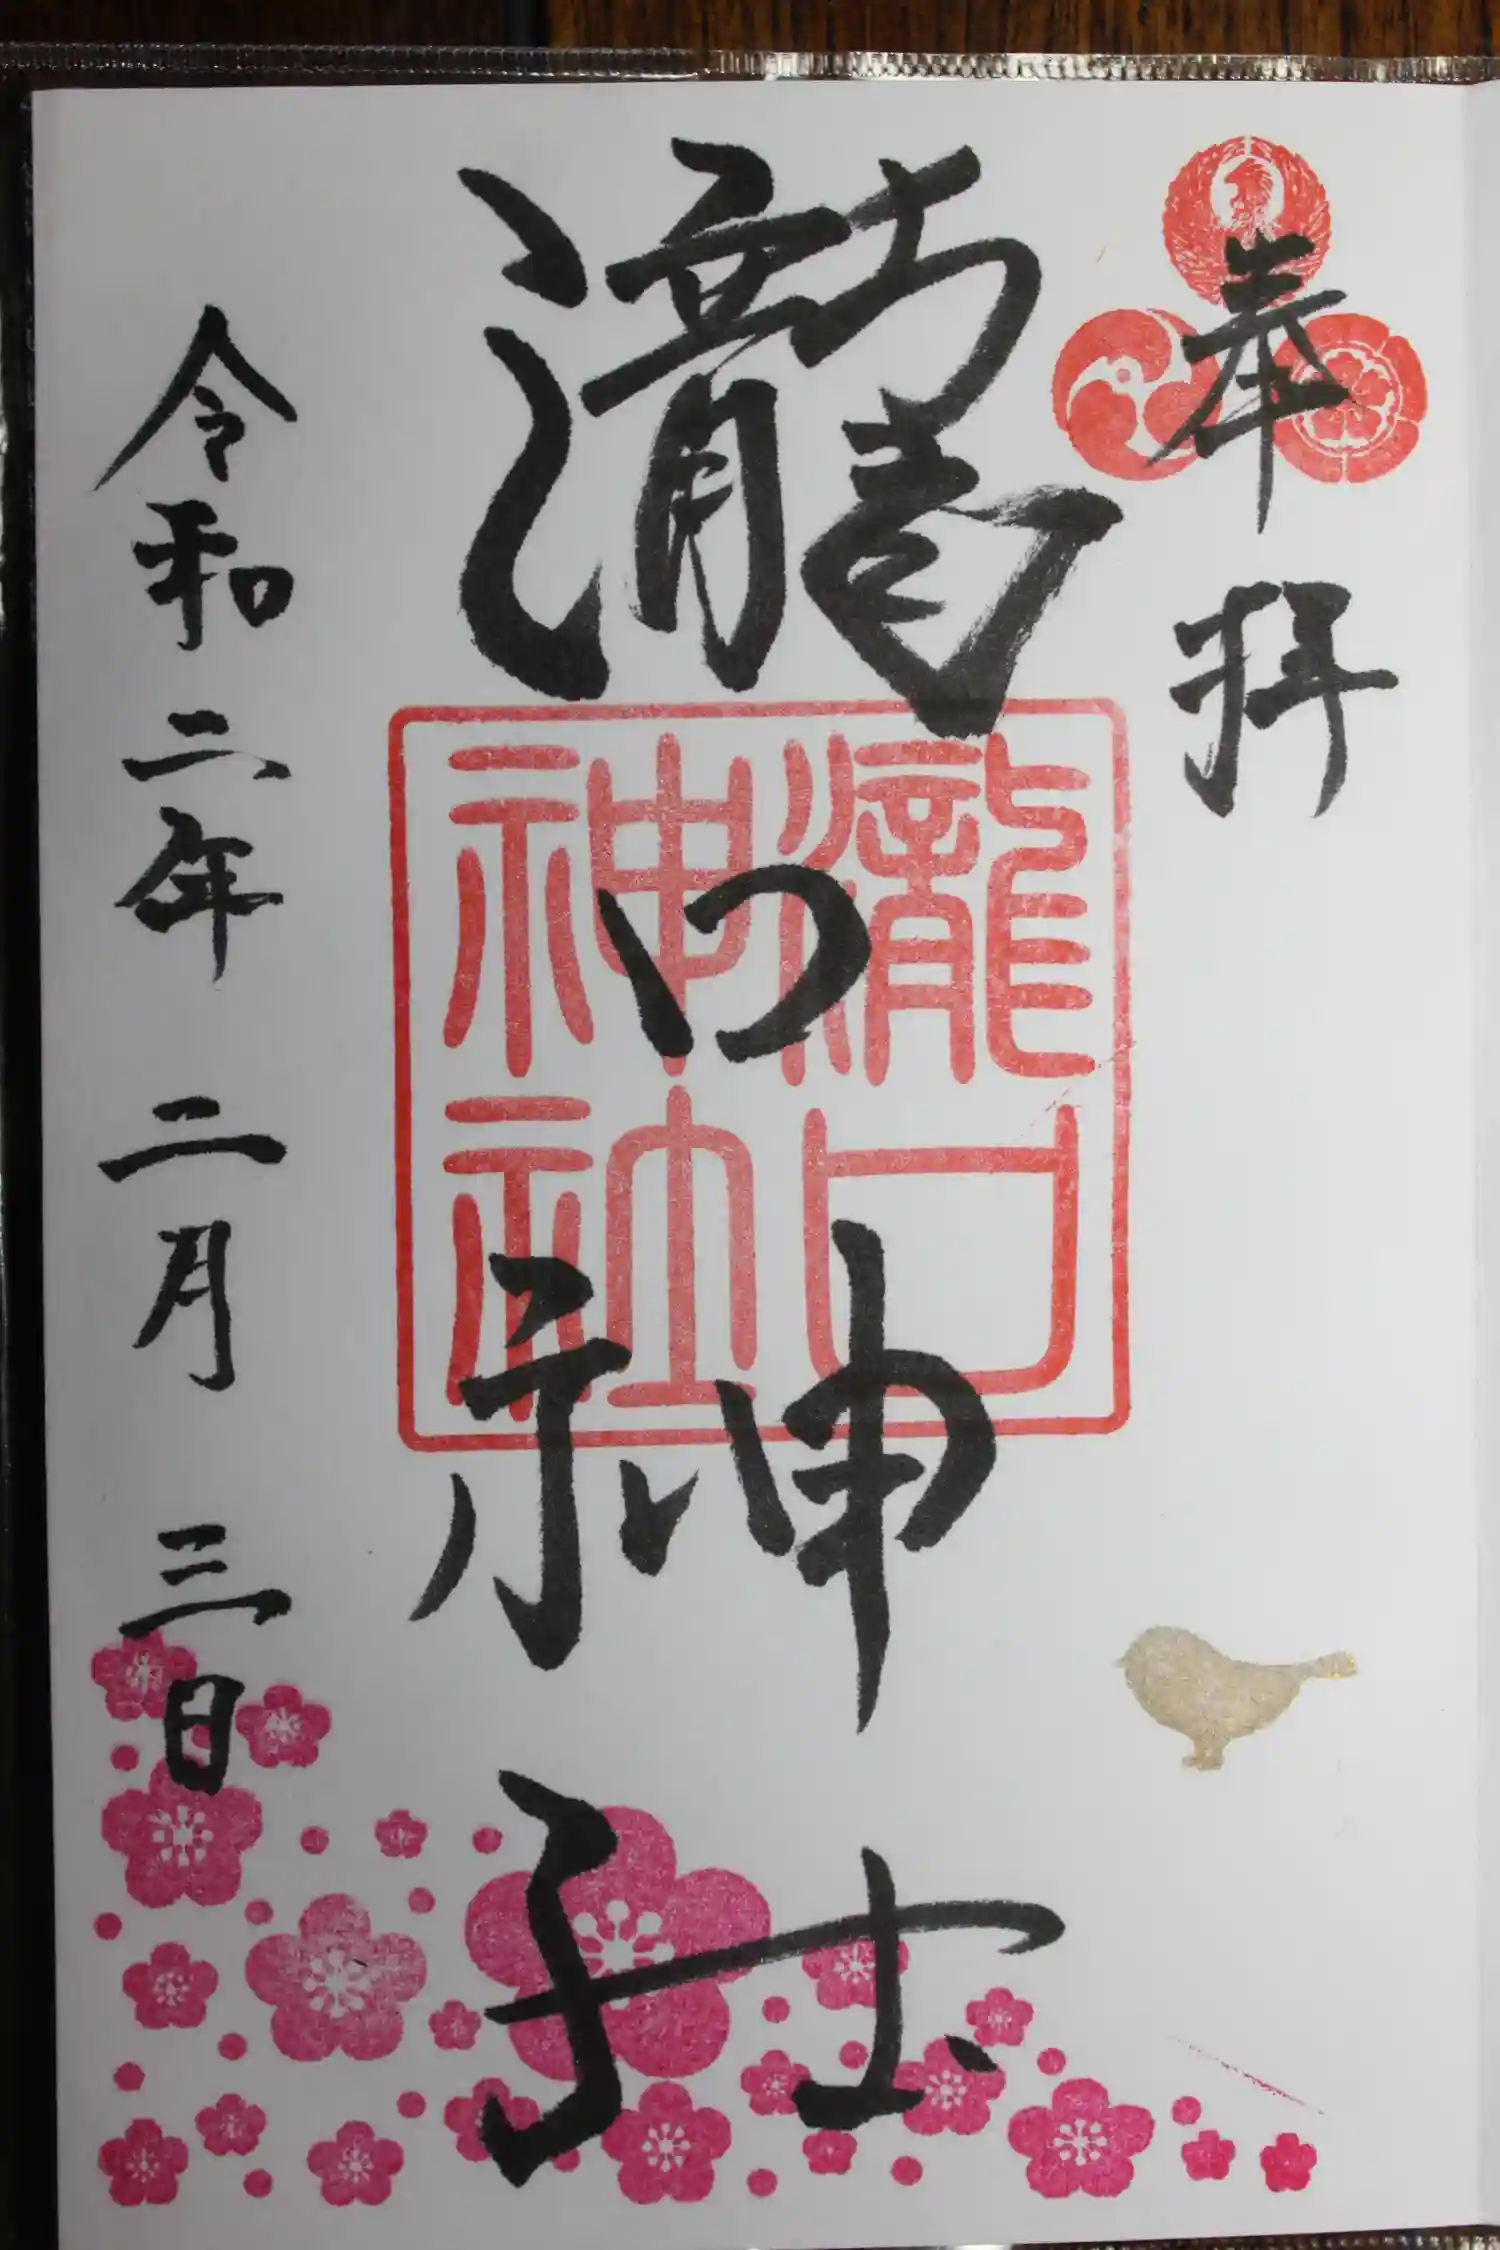 奉拝
瀧口神社
瀧口
神社
令和二年 二月 三日